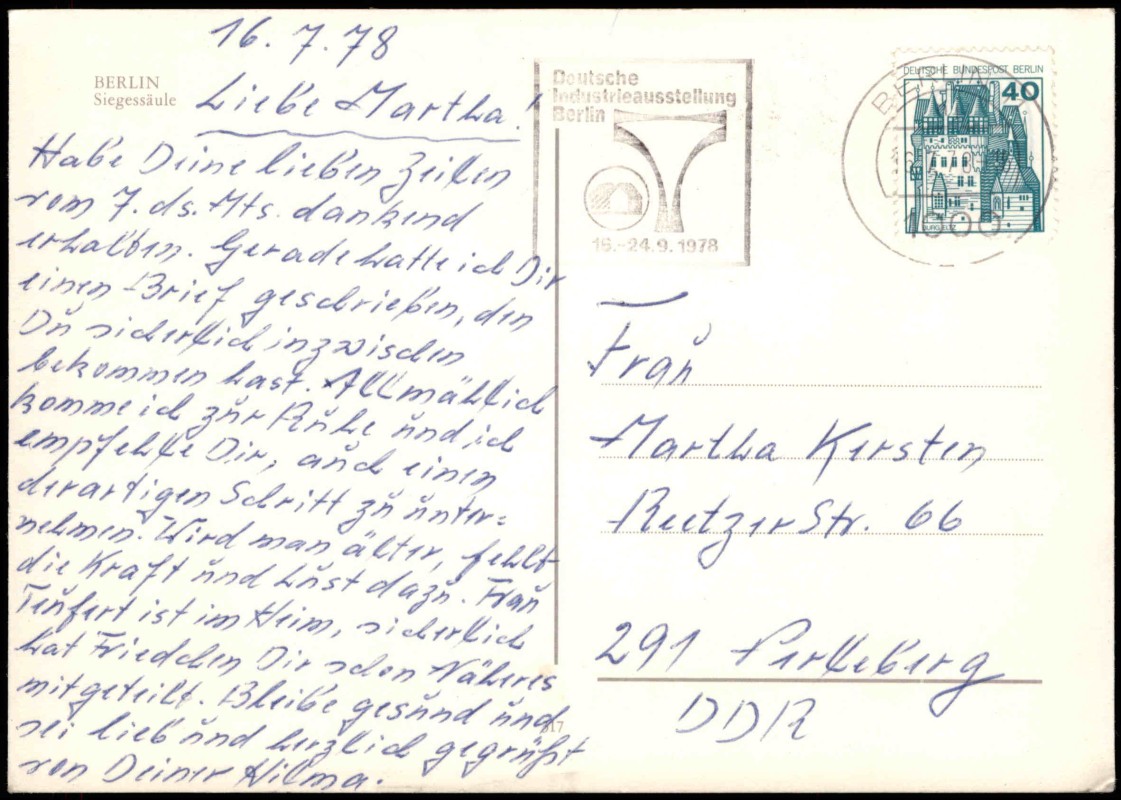 16.7.78
BERLIN
Siegessäule
Liebe Martha!
Habe Deine lieben Zeilen
vom 7. ds. Mts. dankend
erhalten. Gerade hatte ich Dir
einen Brief geschrieben, den
Du sicherlich inzwischen
bekommen hast. Allmählich
komme ich zur Ruhe und ich
empfehle Dir, auch einen
derartigen Schritt zu unter=
nehmen. Wird man älter, fehlt
die Kraft und Lust dazu. Frau
Teufert ist im Heim, sicherlich
hat Friedchen Dir schon Näheres
mitgeteilt. Bleibe gesund und
sei lieb und herzlich gegrüßt
von Deiner Hilma.
Deutsche
Industrieausstellung
Berlin
16.-24.9.1978
DEUTSCHE BUNDESPOST BERLIN
40
BURG ELTZ
BERLIN
1000
Frau
Martha Kersten
Reetzer Str. 66
291 Perleberg
DDR